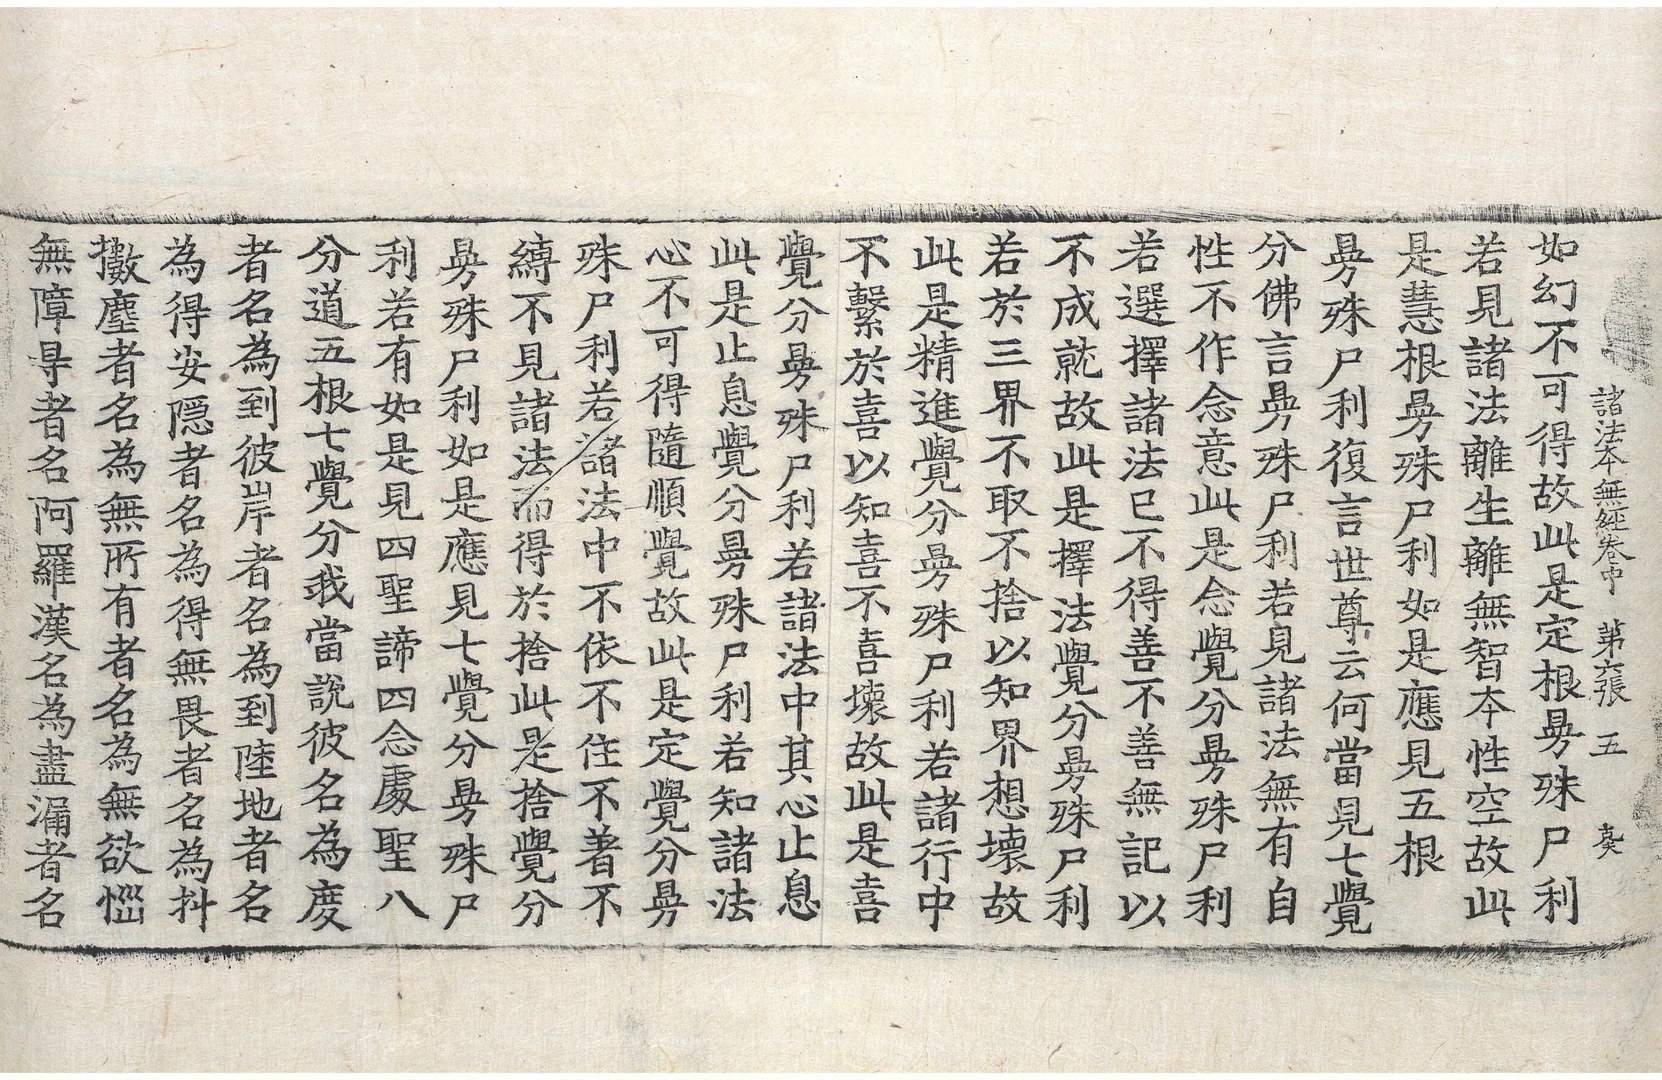 諸法本無經卷中 第六張 五 羙
如幻不可得故此是定根曼殊尸利
若見諸法離生離無智本性空故此
是慧根曼殊尸利如是應見五根
曼殊尸利復言世尊云何當見七覺
分佛言曼殊尸利若見諸法無有自
性不作念意此是念覺分曼殊尸利
若選擇諸法已不得善不善無記以
不成就故此是擇法覺分曼殊尸利
若於三界不取不捨以知界想壞故
此是精進覺分曼殊尸利若諸行中
不繫於喜以知喜不喜壞故此是喜
覺分曼殊尸利若諸法中其心止息
此是止息覺分曼殊尸利若知諸法
心不可得隨順覺故此是定覺分曼
殊尸利若諸法中不依不住不著不
縛不見諸法而得於捨此是捨覺分
曼殊尸利如是應見七覺分曼殊尸
利若有如是見四聖諦四念處聖八
分道五根七覺分我當說彼名為度
者名為到彼岸者名為到陸地者名
為得安隱者名為得無畏者名為抖
擻塵者名為無所有者名為無欲惱
無障㝵者名阿羅漢名為盡漏者名